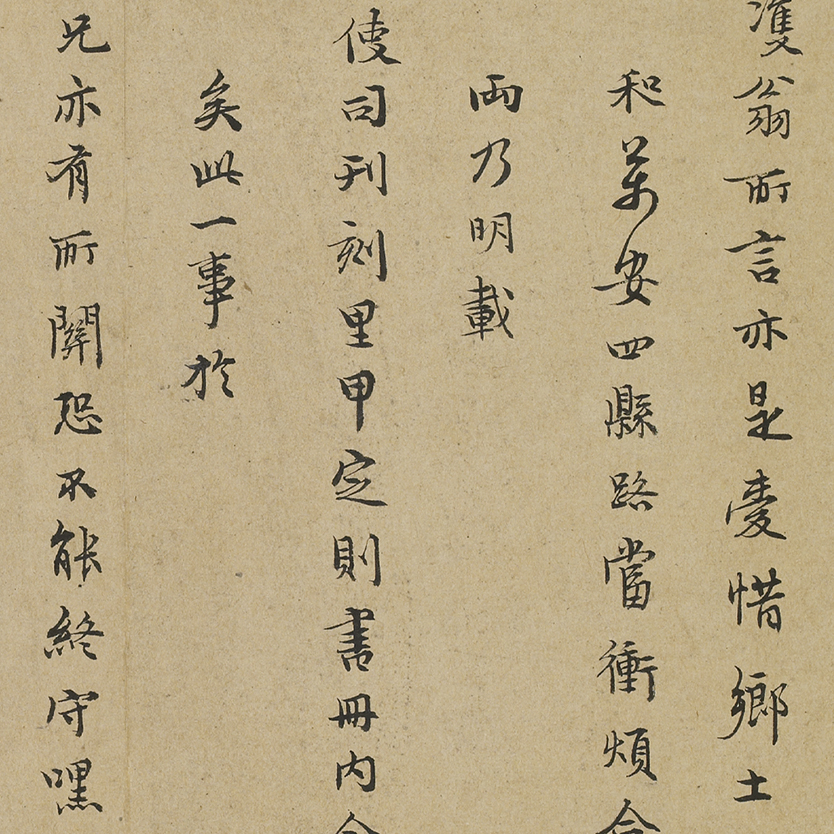 雙翁所言亦是愛惜鄉土
和萬安四縣路當衝煩
兩乃明載
使司刊刻里甲定則書冊内
矣此一事於
兄亦有所關恐不能終守嘿